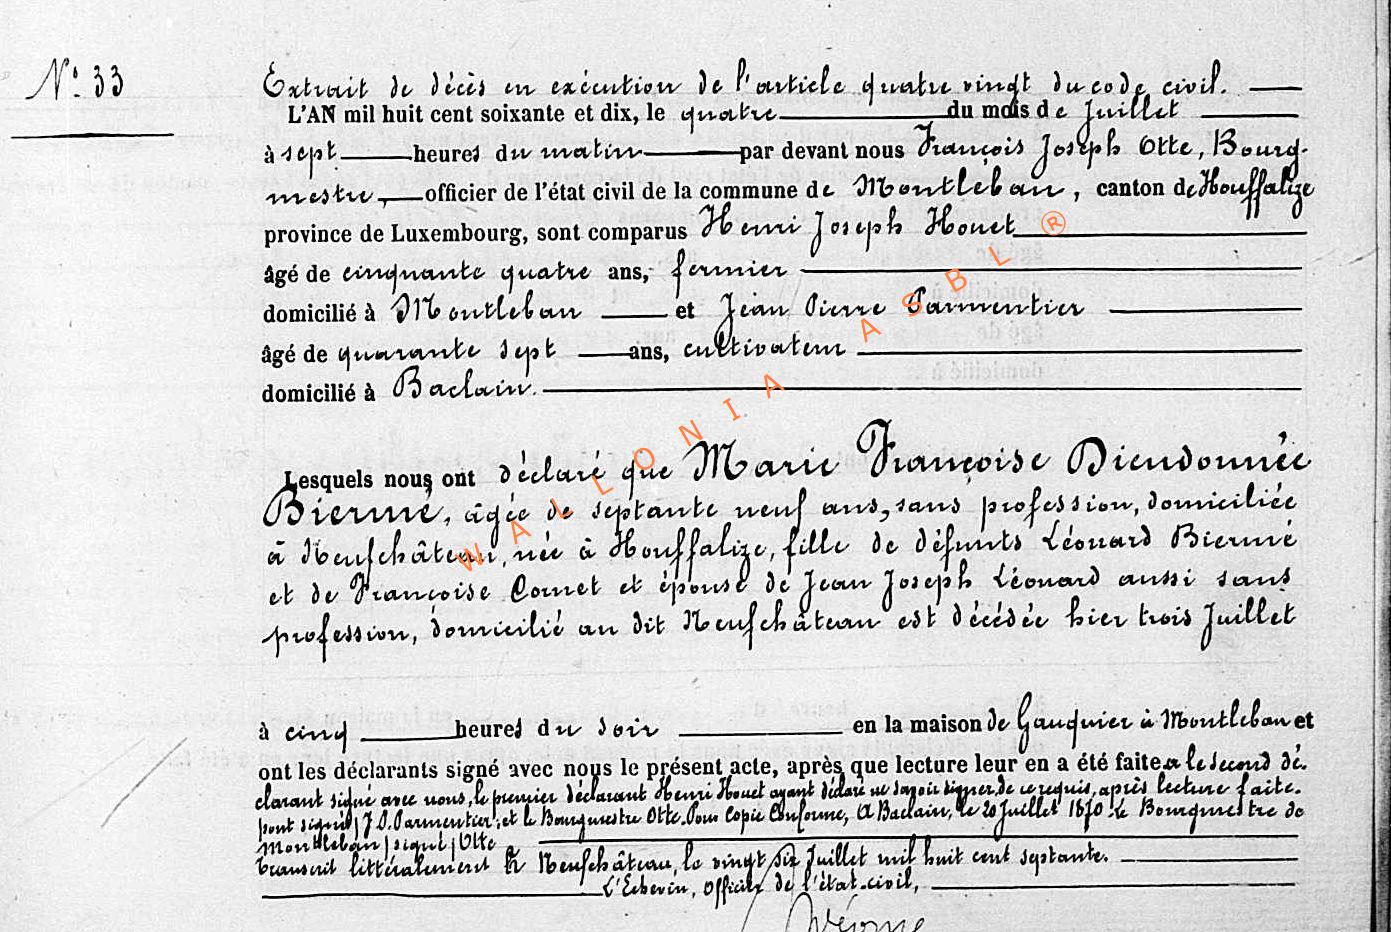 N° 33
Extrait de décès en exécution de l'article quatre vingt du code civil.
L'AN mil huit cent soixante et dix, le quatre du mois de Juillet
à sept heures du matin par devant nous François Joseph Otte, Bourg-
mestre, officier de l'état civil de la commune de Montleban, canton de Houffalize
province de Luxembourg, sont comparus Henri Joseph Houet
âgé de cinquante quatre ans, fermier
domicilié à Montleban et Jean Pierre Parmentier
âgé de quarante sept ans, cultivateur
domicilié à Baclain.
Lesquels nous ont déclaré que Marie Françoise Dieudonnée
Biermé, âgée de septante neuf ans, sans profession, domiciliée
à Neufchâteau, née à Houffalize, fille de défunts Léonard Biermé
et de Françoise Cornet et épouse de Jean Joseph Léonard aussi sans
profession, domicilié au dit Neufchâteau est décédée hier trois Juillet
à cinq heures du soir en la maison de Gauquier à Montleban et
ont les déclarants signé avec nous le présent acte, après que lecture leur en a été faite le second dé-
clarant signé avec nous, le premier déclarant Henri Houet ayant déclaré ne savoir signer, de ce requis, après lecture faite.
sont signés J. P. Parmentier, et le Bourgmestre Otte. Pour Copie Conforme, A Baclain, le 20 Juillet 1870. Le Bourgmestre de
Montleban signé Otte
Transcrit littéralement à Neufchâteau, le vingt six Juillet mil huit cent septante.
L'Echevin, Officier de l'état-civil,
WALLONIA ASBL ®